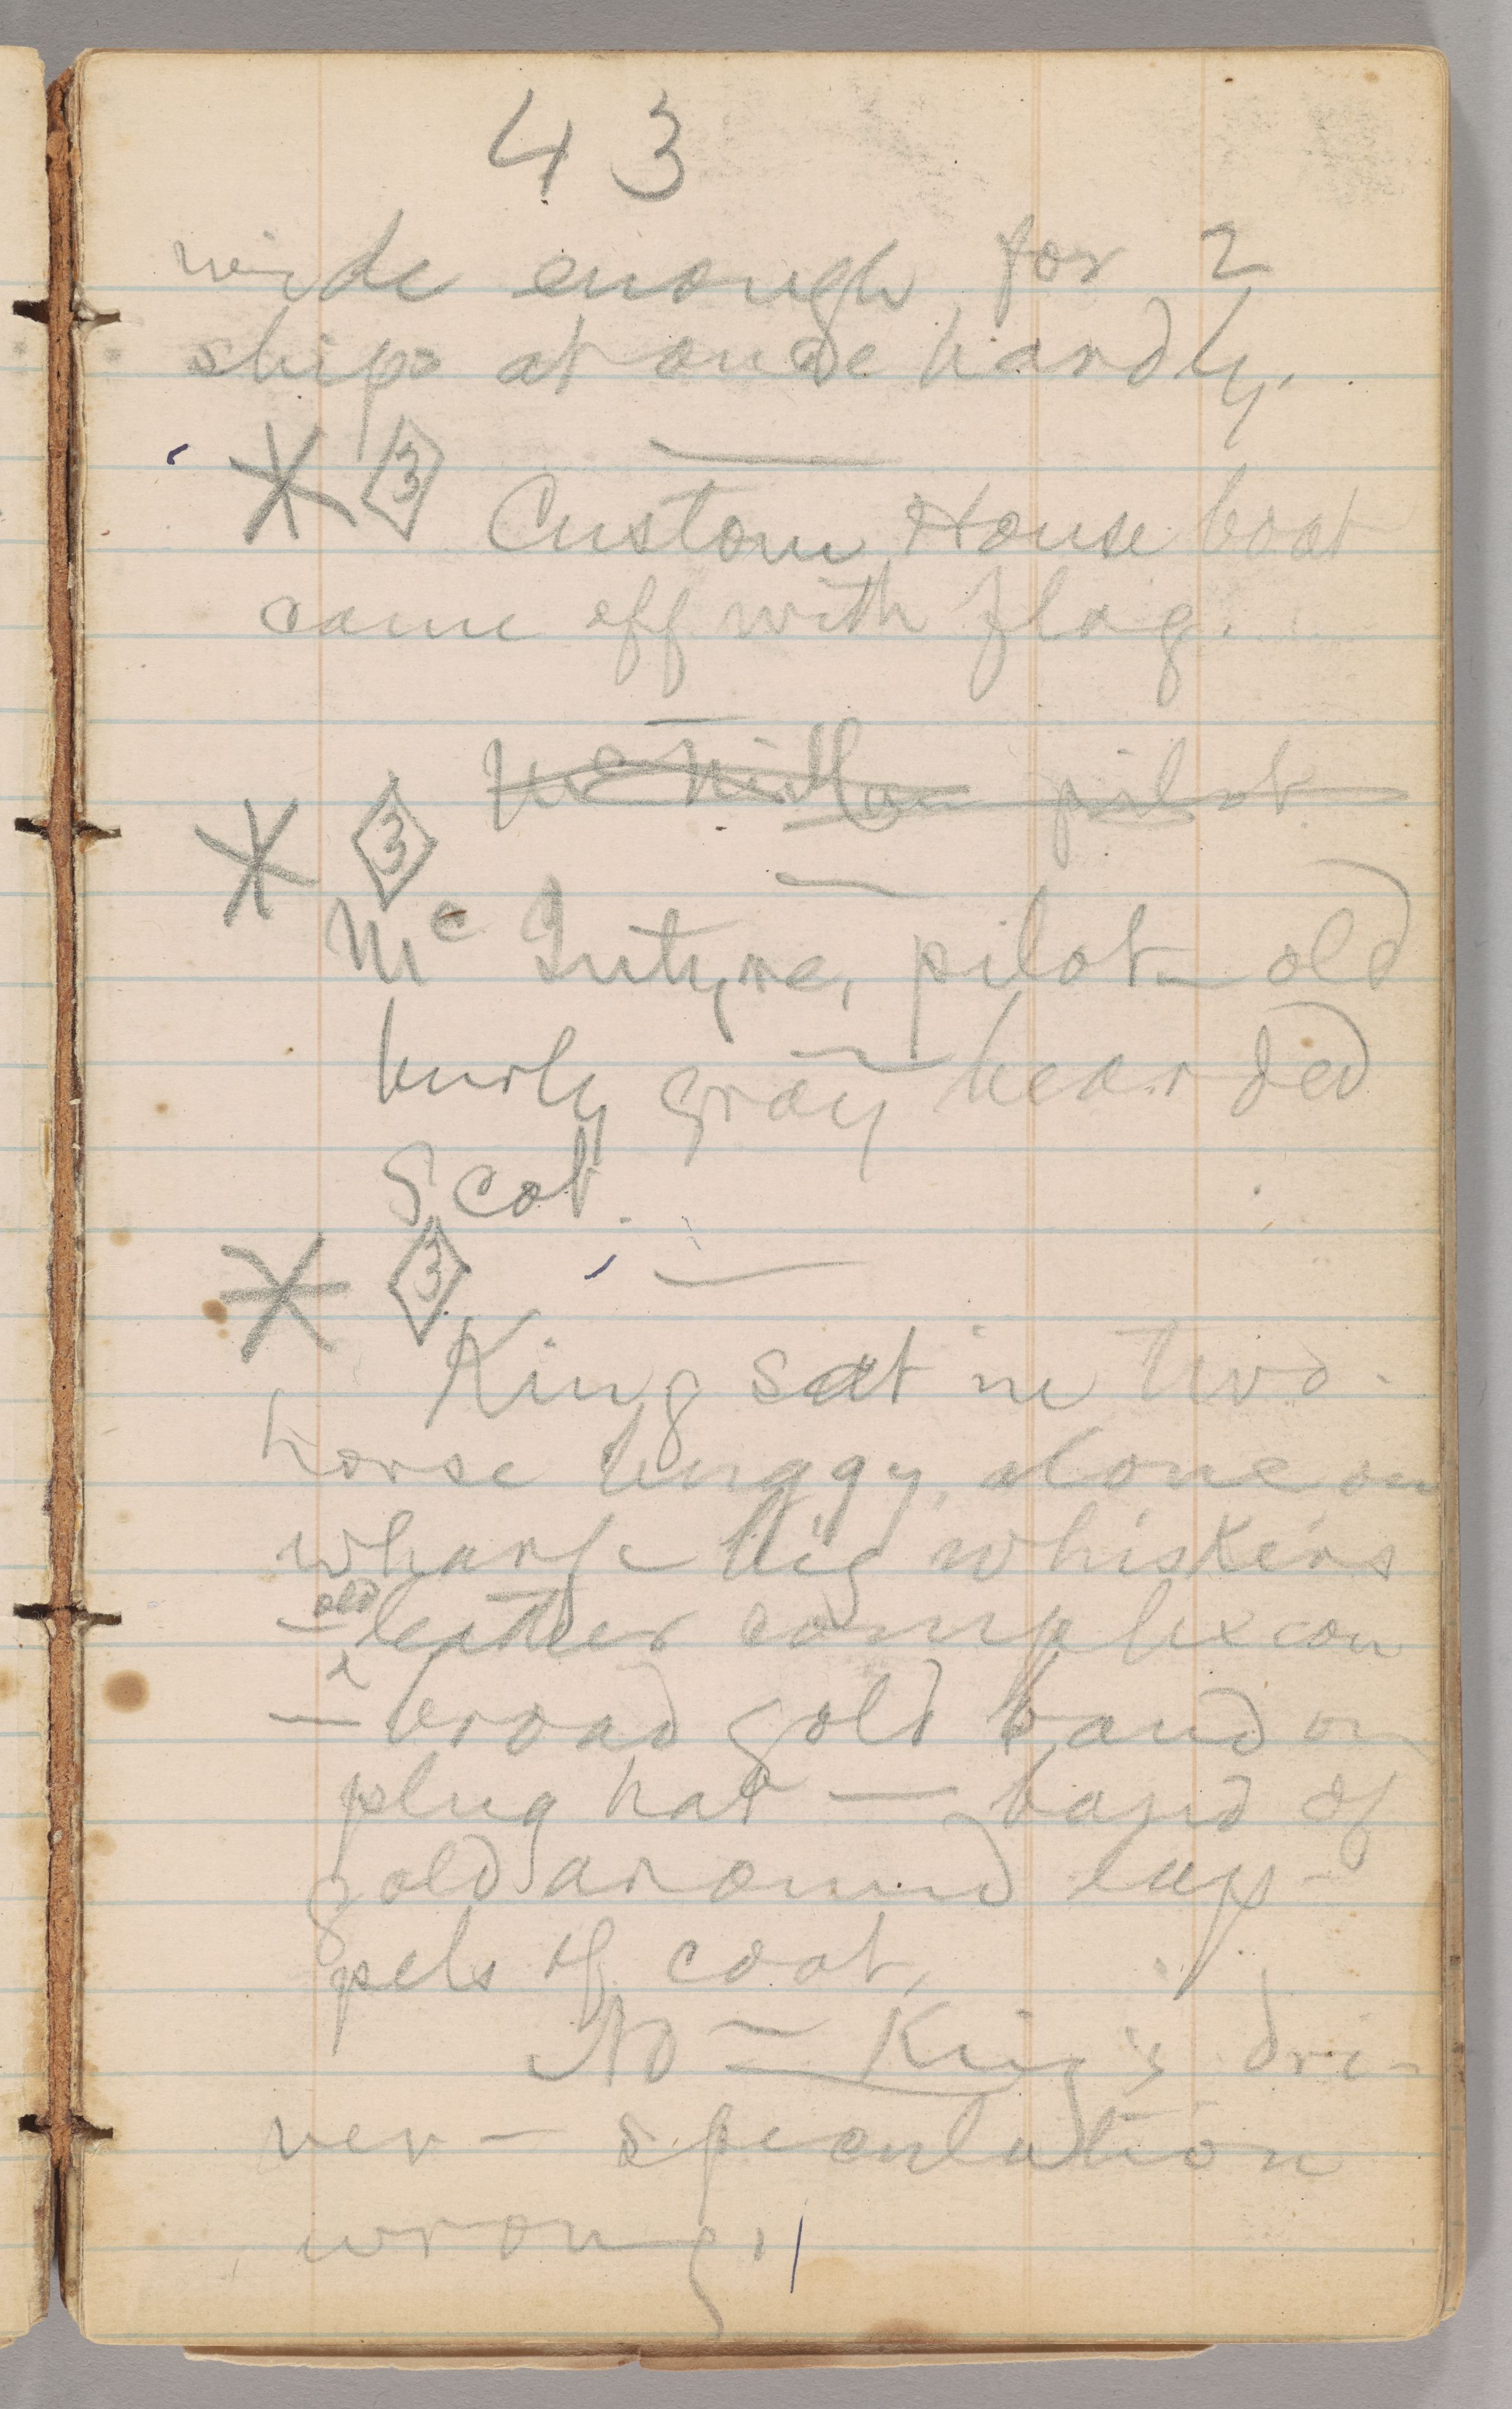 43
wide enough for 2
ships at once hardly.
* 3
Custom House boat
came off with flag.
McMillan pilot
* 3
McIntyre, pilot — old
burly gray bearded
Scot.
* 3
King sat in two-
horse buggy, alone on
wharf — big whiskers
— old leather complexion
— broad gold band on
plug hat — band of
gold around lap-
pels of coat,
No — King's dri-
ver — speculation
wrong.